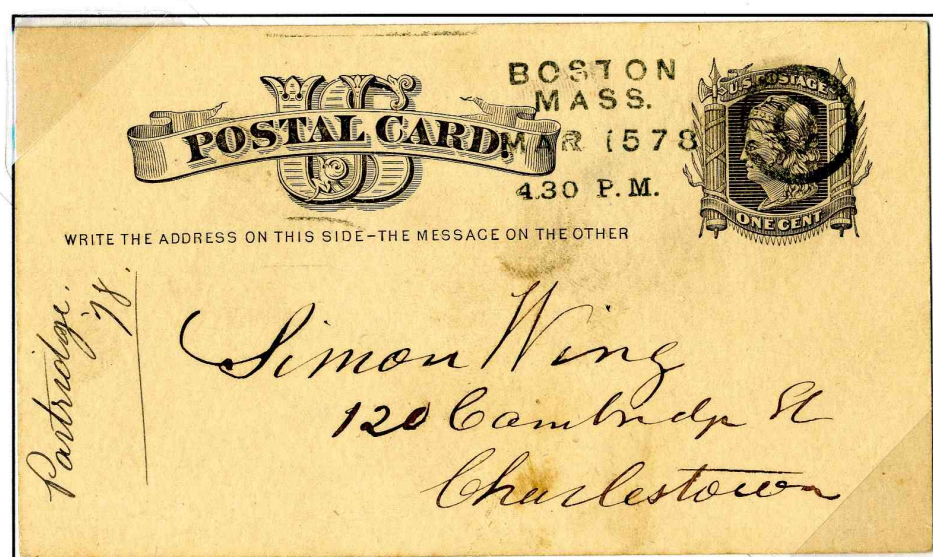 US
POSTAL CARD.
BOSTON
MASS.
MAR 1578
4.30 P.M.
U.S. POSTAGE
ONE CENT
WRITE THE ADDRESS ON THIS SIDE-THE MESSAGE ON THE OTHER
Partridge.
'78.
Simon Wing
120 Cambridge St
Charlestown